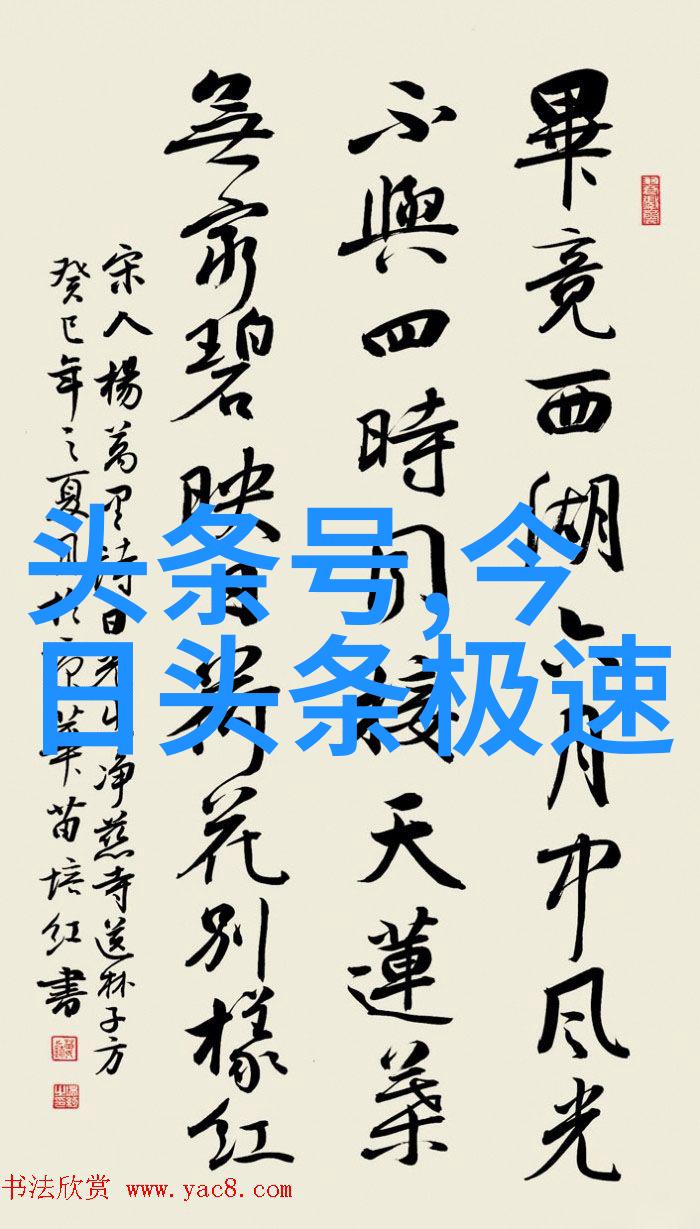 畢竟西湖六月中风光
不與四時同接天蓮葉
無穷碧映日荷花别樣红
宋人楊萬里詩曉出净慈寺送林子方
癸巳年之夏月於京華苗培红書
头条号,今
日头条极速
书法欣赏 www.yac8.com